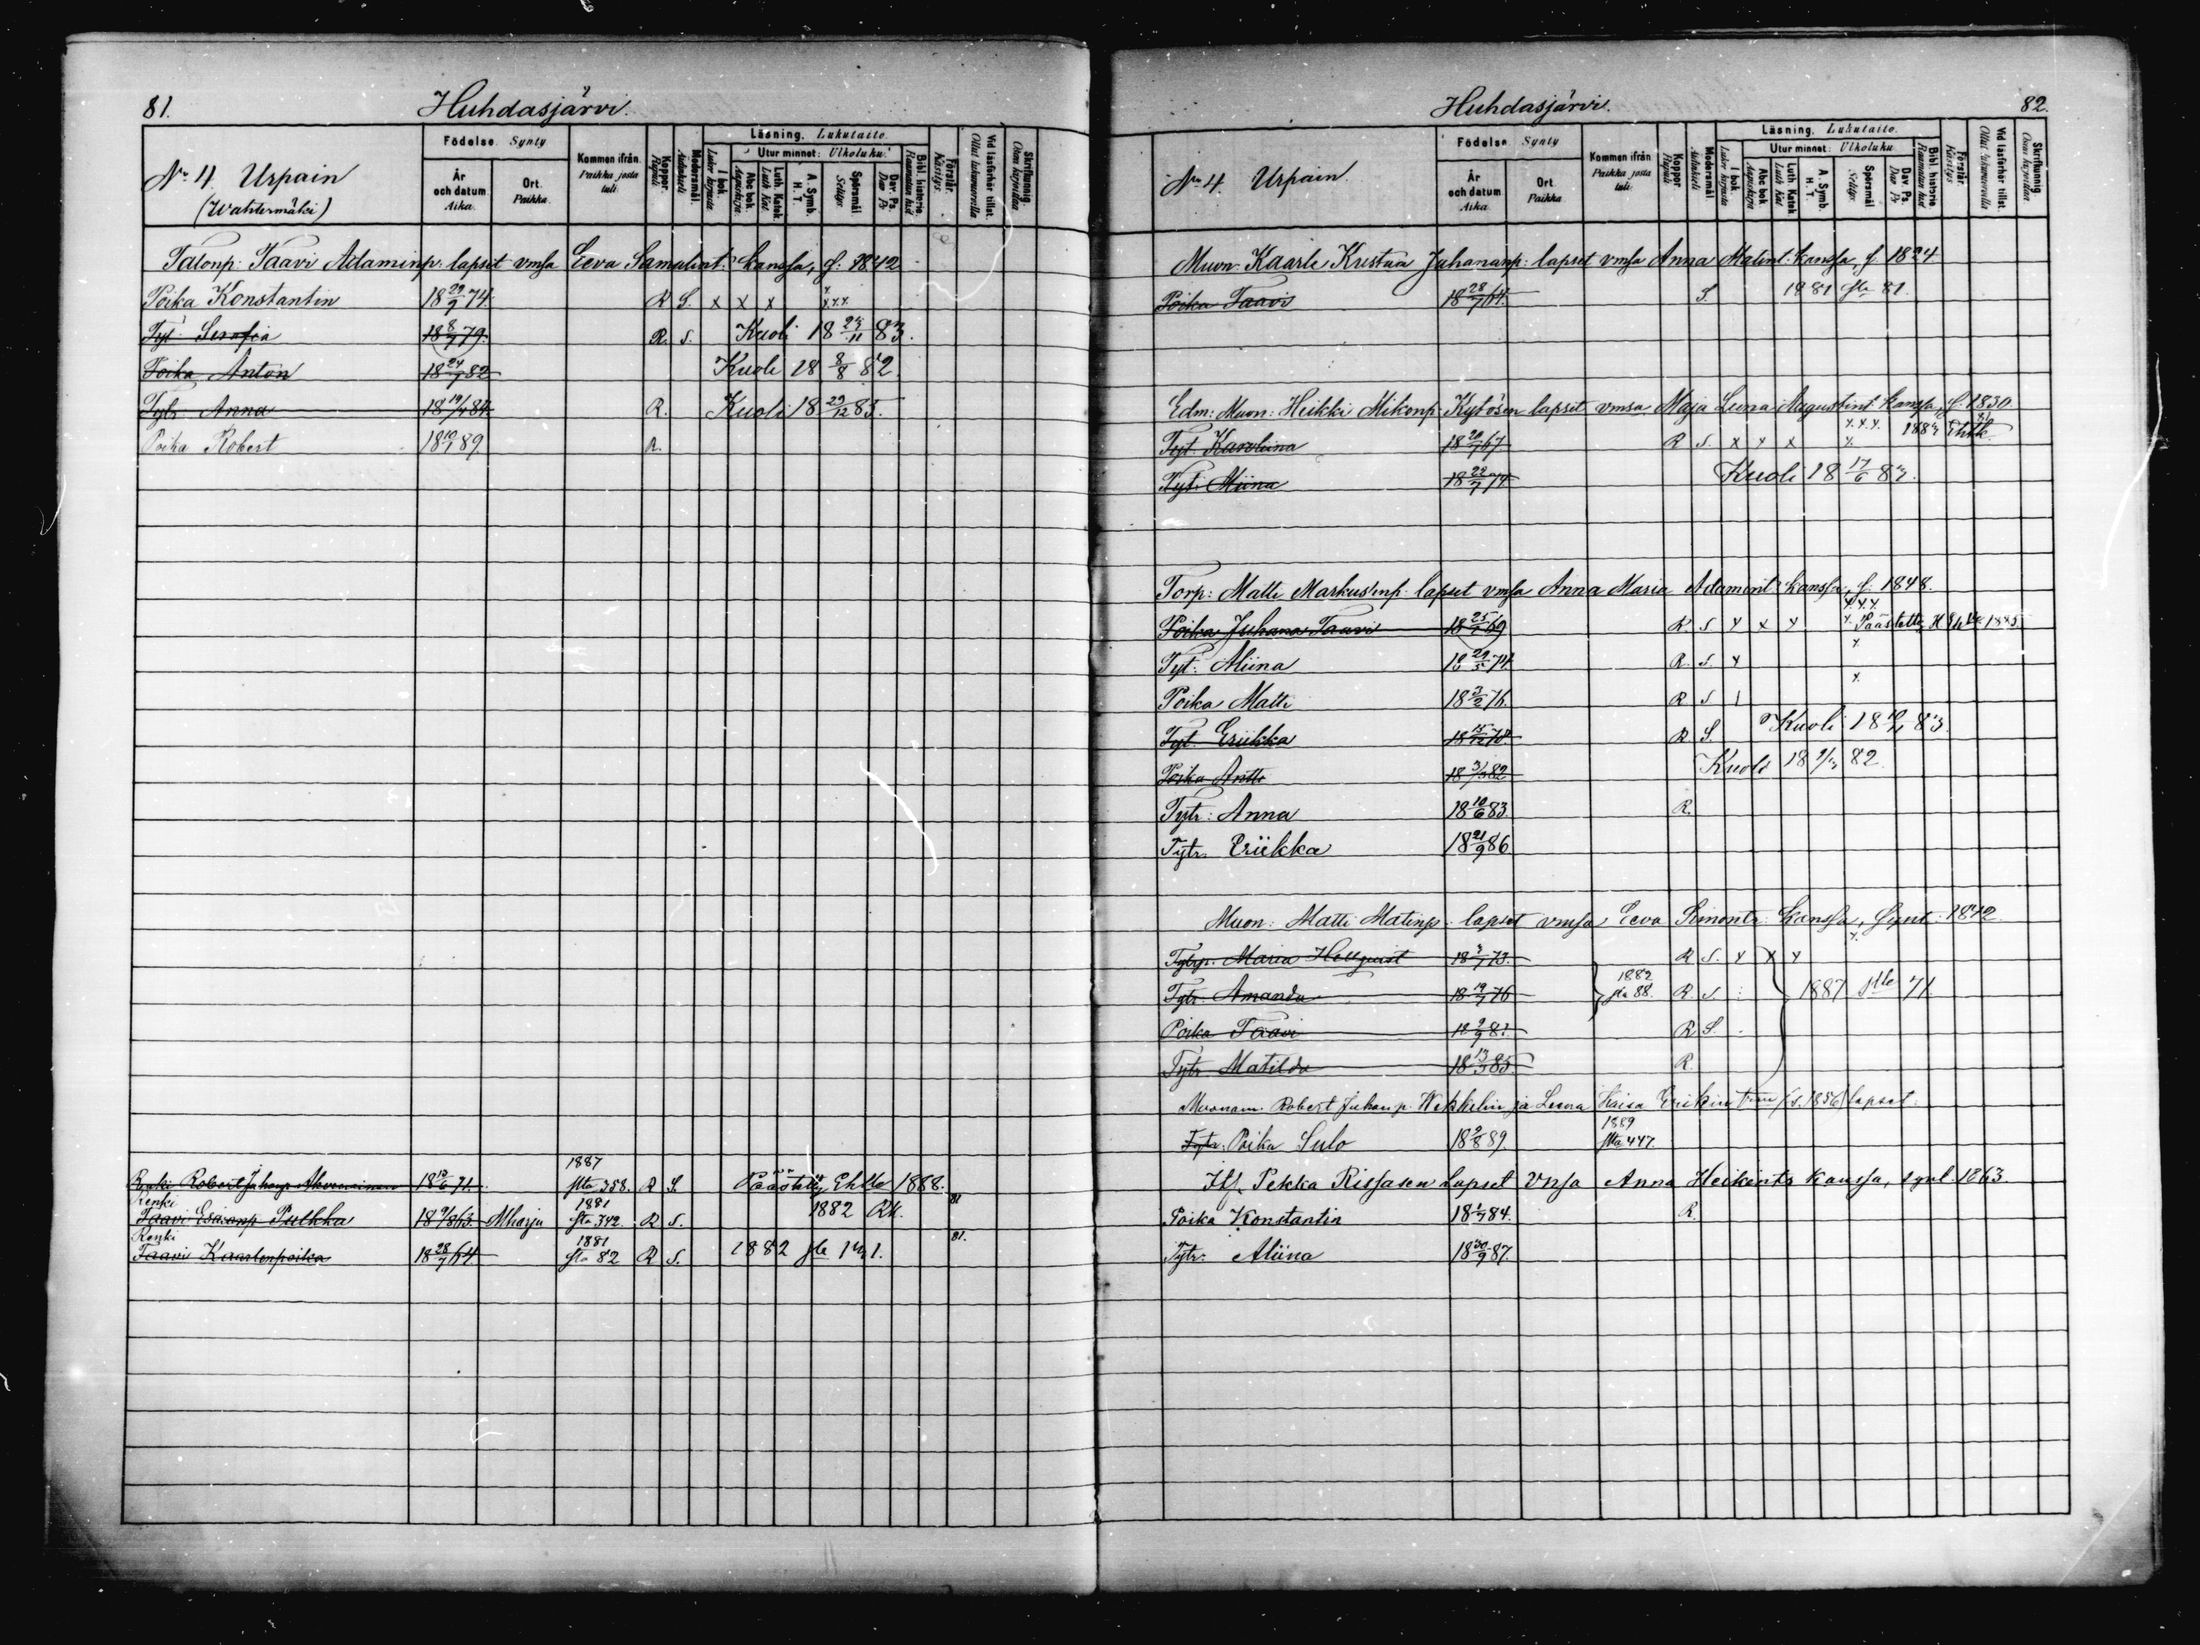 81. Huhdasjärvi.
No 4. Urpain
(Wahtermäki)
Födelse. Synty
År och datum. Aika.
Ort. Paikka.
Kommen ifrån. Paikka josta tuli.
Koppor. Rupuli
Modersmål. Äidinkieli
Läsning. Lukutaito.
I bok.
Utur minnet: Ulkoluku:
Abc bok. Aapiskirja.
Luth. Katek. Luth. Kat.
A. Symb. H. T.
Spörsmål Selitys.
Dav. Ps. Dav. Ps
Bibl. historie. Raamatun hist
Förstår. Käsitys.
Vid läsförhör tillst. Ollut lukunuorella
Skrifkunnig. Osaa kirjoittaa
Talonp: Taavi Adaminp: lapset vmsa Eeva Samulint: kanssa, s: 1842
Poika Konstantin 18 29/9 74. R S. x x x x x x x
Tyt: Serafia 18 8/9 79. R. S. Kuoli 18 24/11 83.
Poika Anton 18 24/7 82 Kuoli 18 8/8 82.
Tytr. Anna 18 19/4 84. R. Kuoli 18 29/12 85.
Poika Robert 18 10/1 89. R.
1887
Renki Robert Juhanp. 71. sta 358. R S. Päästetty Ehtlle 1888.
Renki 1881 81
Taavi Esaianp Pulkka 18 9/8 63. Mharju sta 342. R S. 1882 Rk.
Renki 1881 81.
Taavi Kaarlenpoika 18 28/7 64. sta 82 R S. 1882 sle
Huhdasjärvi. 82.
No 4. Urpain.
Födelse. Synty
År och datum. Aika
Ort Paikka.
Kommen ifrån. Paikka josta tuli.
Koppor. Rupuli
Modersmål. Äidinkieli
Läsning. Lukutaito.
I bok.
Utur minnet: Ulkoluku
Abc bok Aapiskirja
Luth. Katek Luth Kat.
A. Symb. H. T.
Spörsmål Selitys.
Dav. Ps. Dav Ps
Bibl. historie Raamatun hist
Förstår. Käsitys
Vid läsförhör tillst. Ollut lukunuorella
Skrifkunnig. Osaa kirjoittaa
Muon. Kaarle Kustaa Juhananp: lapset vmsa Anna Matint: kanssa, s. 1824.
Poika Taavi 18 28/7 64. S. 1881 sle 81.
Edm: Muon: Heikki Mikonp. Kytösen lapset vmsa Maja Leena Augustint kanssa, s. 1830.
Tyt. Karoliina 18 20/7 67. R S. x x x x x x x
Tyt: Miina 18 22/7 74 Kuoli 18 17/6 82.
Torp: Matti Markusenp. lapset vmsa Anna Maria Adamint: kanssa, s: 1848.
Poika Juhana Taavi 18 25/7 69 R. S x x x x x x x Päästetty
Tyt: Aliina 18 29/5 74. R. S. x x
Poika Matti 18 3/2 76. R S x
Tyt. Eriikka 18 15/12 78. R S. Kuoli 18 83.
Poika Antti 18 3/3 82 Kuoli 18 82.
Tytr: Anna 18 10/6 83. R.
Tytr. Eriikka 18 21/9 86
Muon: Matti Matinp. lapset vmsa Eeva Simontr: kanssa, synt. 1842.
Maria Hellqvist 73. R S. x x x x
Tytr: Amanda 18 19/7 76 1882 sta 88. R. S. 1887 slle 71
Poika Taavi R S.
Tytr. Matilda 18 13/3 85. R.
Muonam. Robert Juhanp. Wekkelin ja Leena Kaisa Erikint:n (s. 1856) lapset.
1889
Tytr. Poika Sulo 18 2/8 89. sta 447.
Itl. Pekka Rissasen lapset Vmsa Anna Heikintr kanssa, synt. 1863
Poika Konstantin 18 1/7 84. R.
Tytr: Aliina 18 30/9 87.